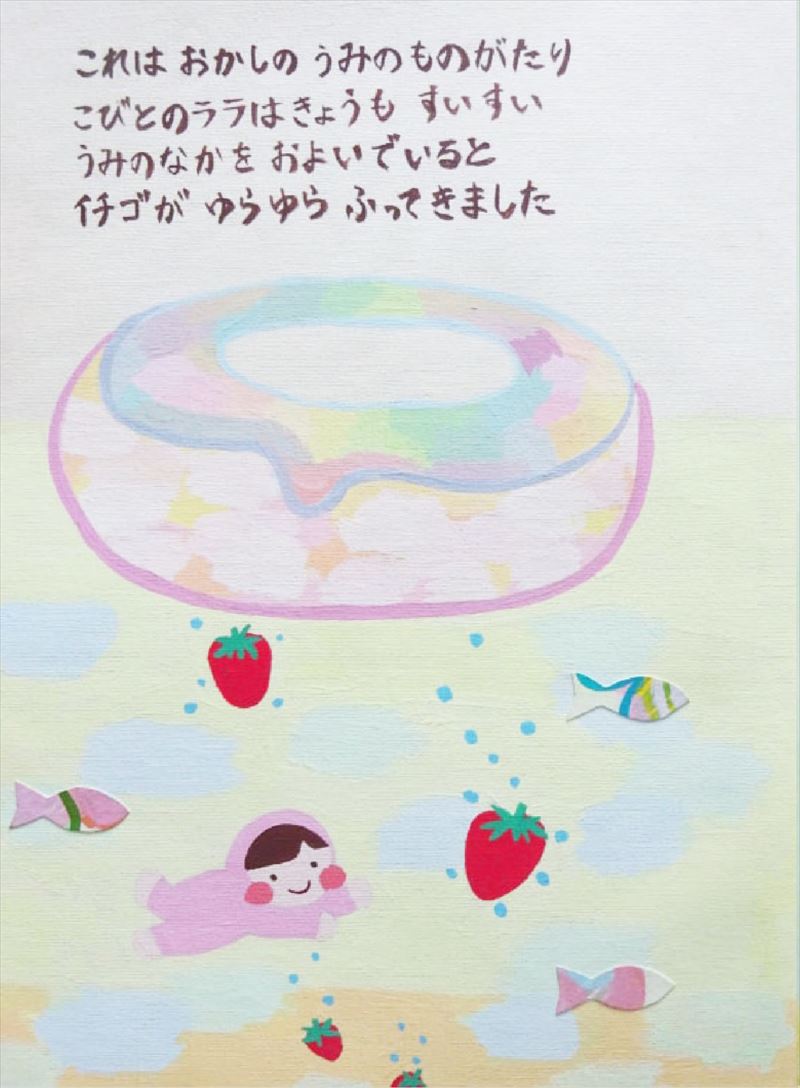 これは おかしの うみのものがたり
こびとのララはきょうも すいすい
うみのなかを およいでいると
イチゴが ゆらゆら ふってきました